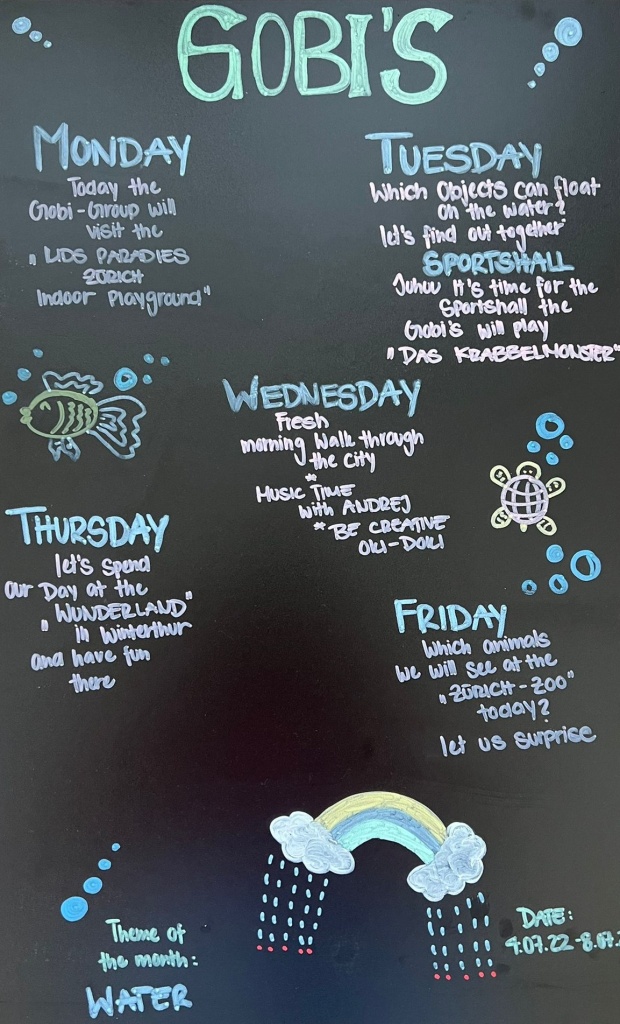 GOBI'S
MONDAY
Today the
Gobi-Group will
visit the
„KIDS PARADIES
ZÜRICH
Indoor Playground"
TUESDAY
Which Objects can float
on the water?
let's find out together
SPORTSHALL
Juhu It's time for the
Sportshall the
Gobi's will play
"DAS KRABBELMONSTER"
WEDNESDAY
Fresh
morning Walk through
the City
*
MUSIC TIME
with ANDREJ
* BE CREATIVE
OKI-DOKI
THURSDAY
let's spend
our Day at the
„WUNDERLAND"
in Winterthur
and have fun
there
FRIDAY
Which animals
we will see at the
„ZÜRICH-ZOO"
today?
let us surprise
Theme of
the month:
WATER
DATE:
4.07.22-8.07.